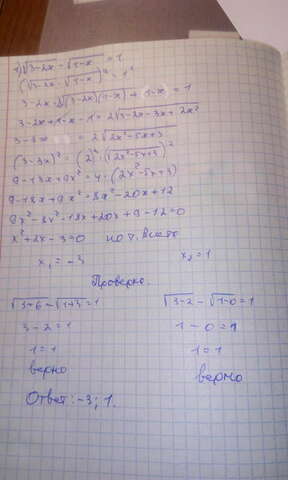 1) √3-2x - √1-x = 1.
(√3-2x - √1-x)² = 1²
3-2x-2√(3-2x)(1-x) + 1-x = 1
3-2x+1-x-1 = 2√3-2x-3x+2x²
3-3x = 2√2x²-5x+3
(3-3x)² = (2)²·(√2x²-5x+3)²
9-18x+9x² = 4·(2x²-5x+3)
9-18x+9x² = 8x²-20x+12
9x²-8x²-18x+20x+9-12=0
x²+2x-3=0 по т. Виета
x₁ = -3 x₂ = 1
Проверка.
√3+6 - √1+3 = 1 √3-2 - √1-0 = 1
3-2=1 1-0=1
1=1 1=1
верно верно
Ответ: -3; 1.